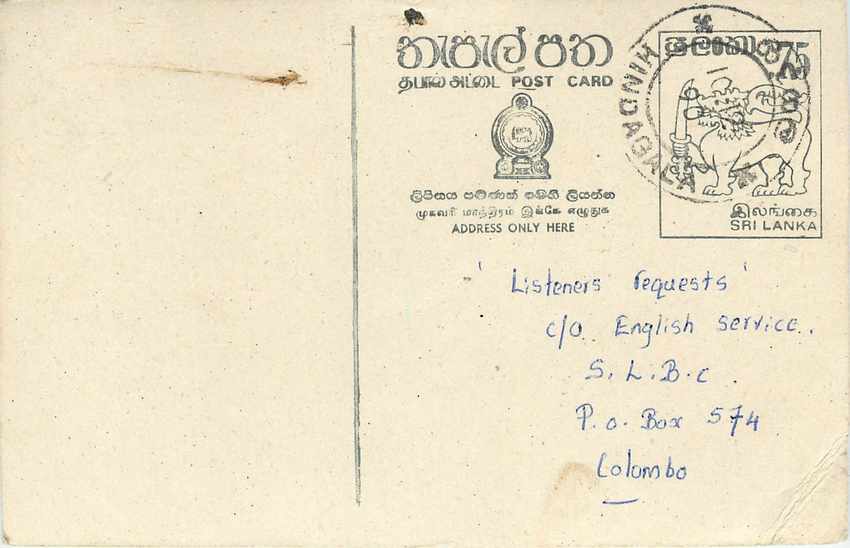 තැපැල් පත
தபால் அட்டை POST CARD
ලිපිනය පමණක් මෙහි ලියන්න
முகவரி மாத்திரம் இங்கே எழுதுக
ADDRESS ONLY HERE
ශ්‍රී ලංකා 75
இலங்கை
SRI LANKA
HINDAGALA
'Listeners requests'
c/o English service.
S. L. B. C.
P. O. Box 574
Colombo